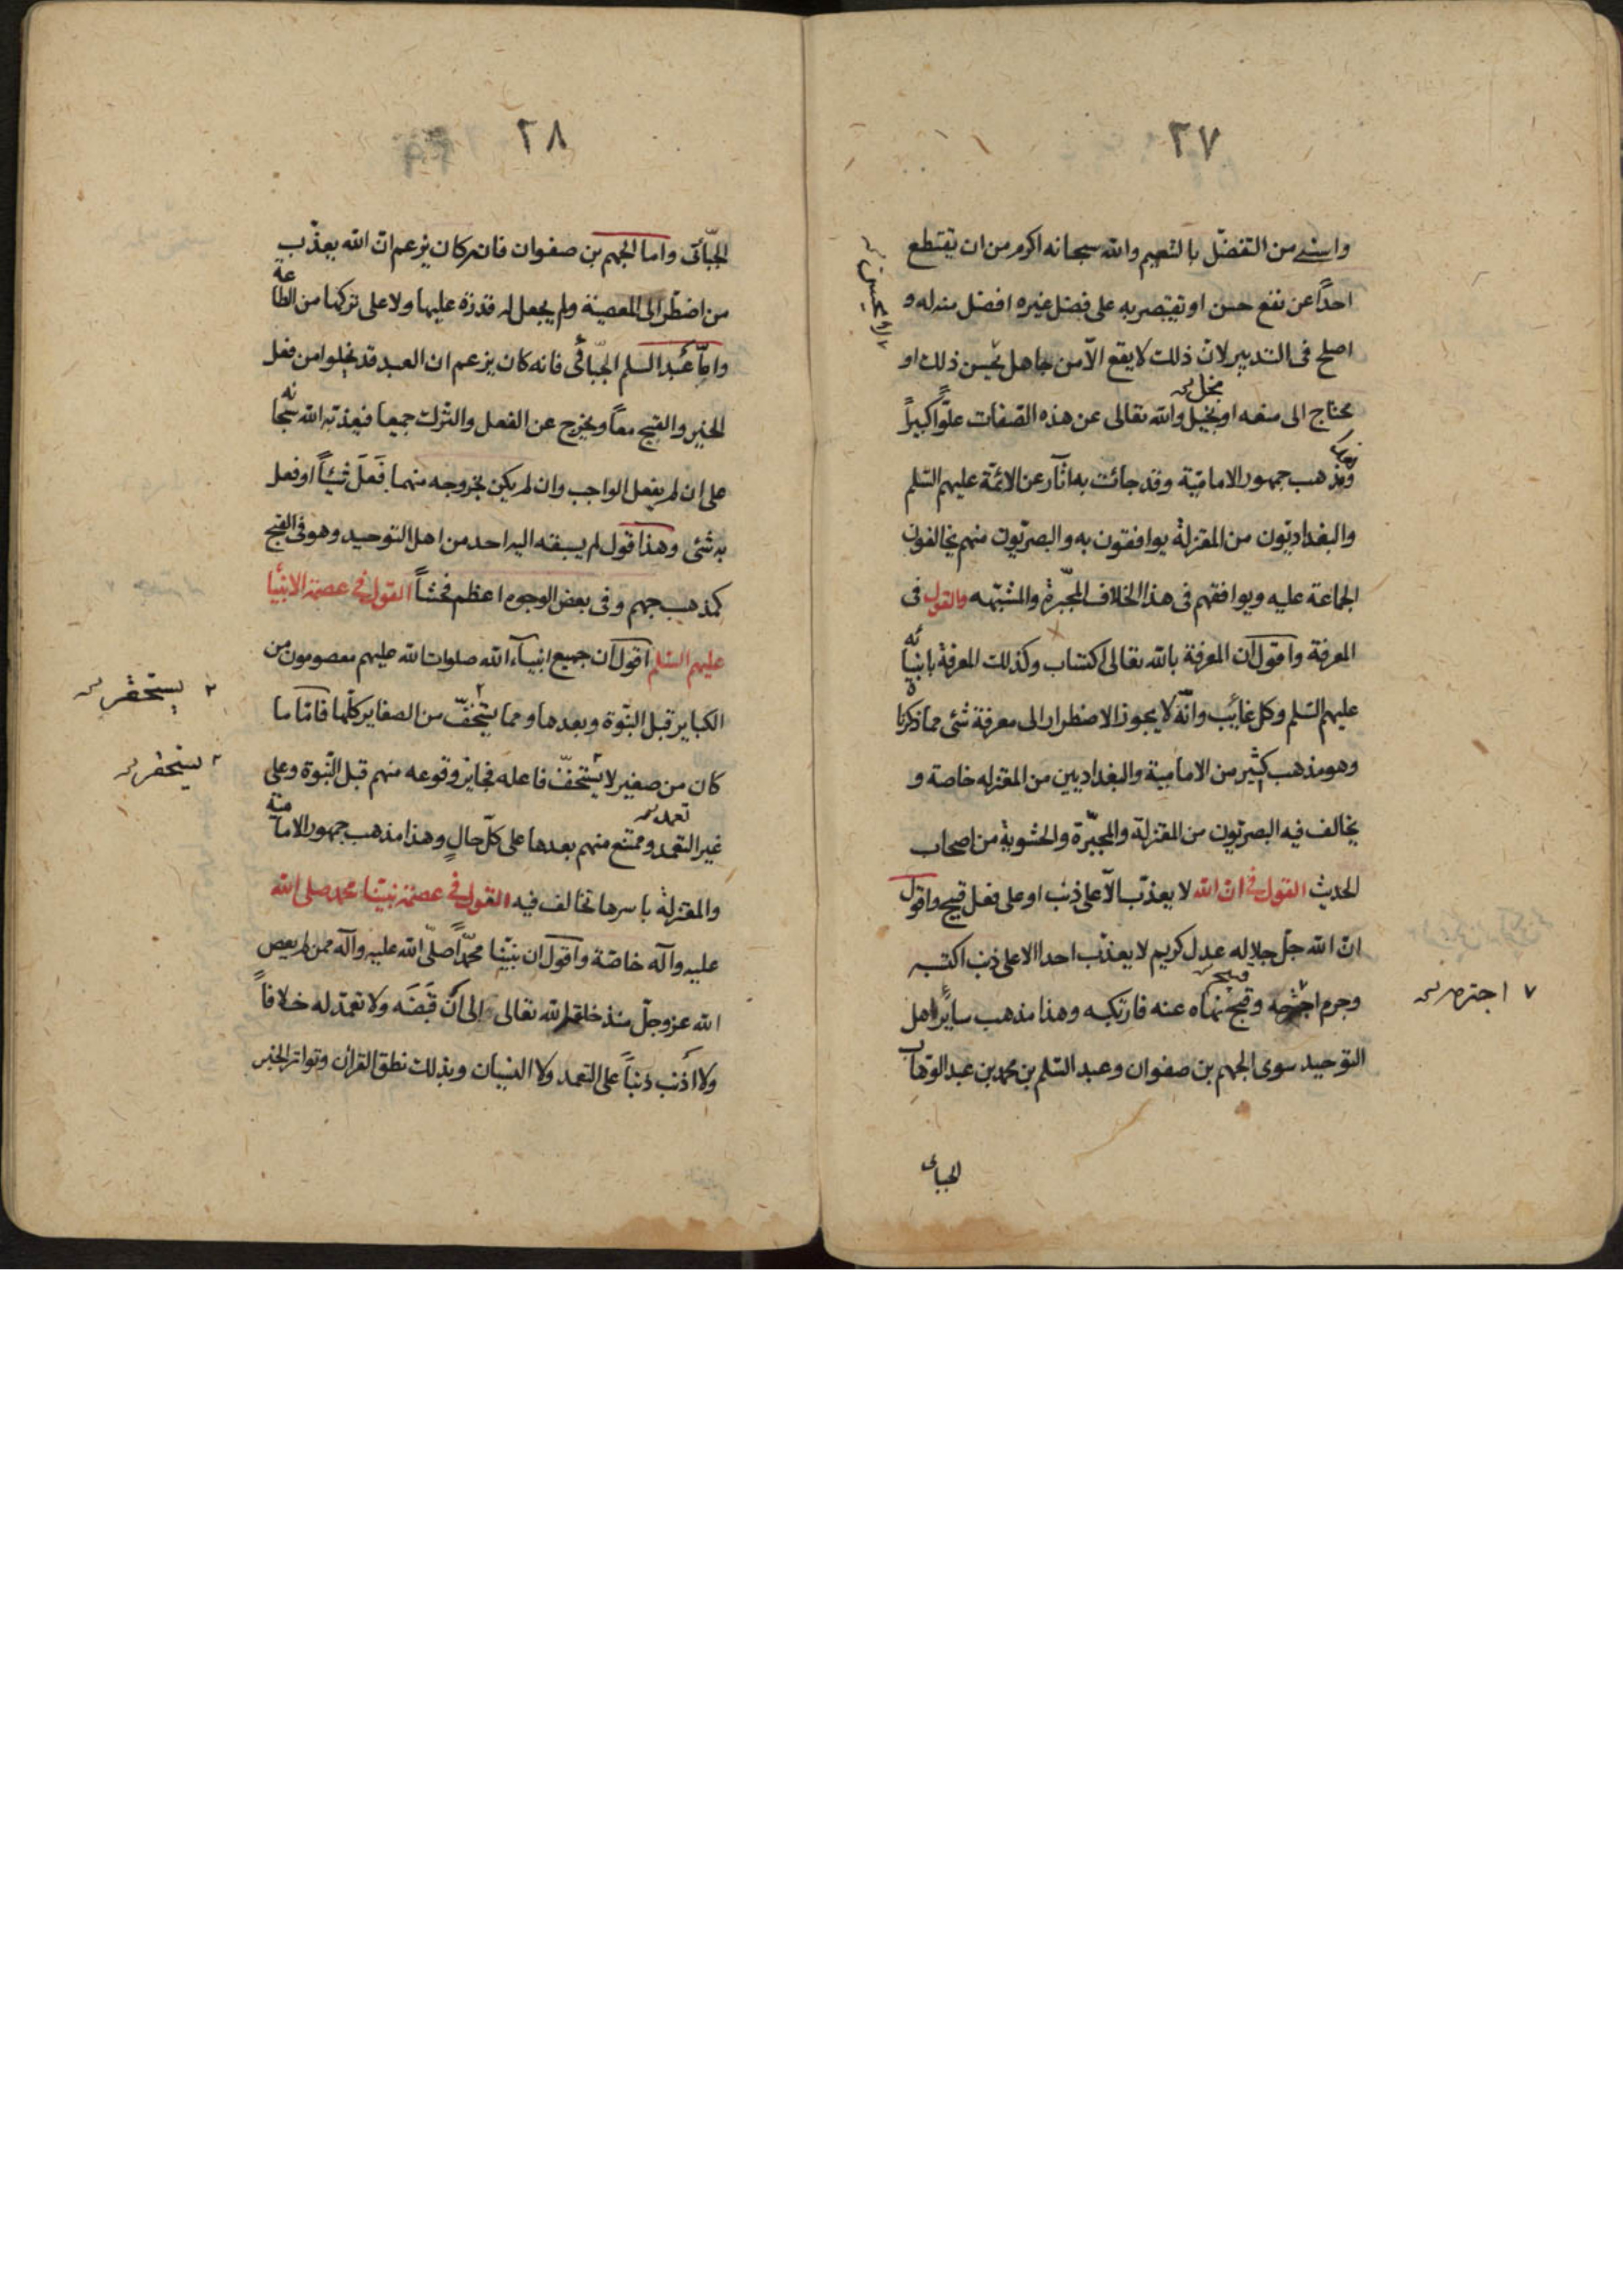 ٢٧
واسنى من التفضّل بالنعيم والله سبحانه اكرم من ان يقتطع
احداً عن نفع حسن او يقتصر به على فضل غيره افضل منه له و
اصلح فى التدبير لانّ ذلك لا يقع الّا من جاهل بحسن ذلك او
محتاج الى منعه او بخيل والله تعالى عن هذه الصّفات علوّاً كبيراً
بخل
ومذهب جمهور الاماميّة وقد جائت به اثار عن الائمّة عليهم السّلم
والبغداديّون من المعتزلة يوافقون به والبصريّون منهم يخالفون
الجماعة عليه ويوافقهم فى هذا الخلاف المجبّرة والمشبّهه والقول فى
المعرفة واقول ان المعرفة بالله تعالى اكتساب وكذلك المعرفة بانبيائه
عليهم السّلم وكل غائب وانّه لا يجوز الاضطرار الى معرفة شئ مما ذكرناه
وهو مذهب كثير من الامامية والبغداديين من المعتزله خاصة و
يخالف فيه البصريّون من المعتزلة والمجبّرة والحشوية من اصحاب
الحديث القول فى انّ الله لا يعذّب الّا على ذنب او على فعل قبيح واقول
انّ الله جلّ جلاله عدل كريم لا يعذّب احدا الا على ذنب اكتسبه
وجرم اجترحه وقبيح نهاه عنه فارتكبه وهذا مذهب ساير اهل
٧ اجترمه
التوحيد سوى الجهم بن صفوان وعبد السّلم بن محمد بن عبد الوّهاب
الجباى
٢٨
الجبّائى واما الجهم بن صفوان فانه كان يزعم انّ الله يعذّب
من اضطرّ الى المعصية ولم يجعل له قدرة عليها ولا على تركها من الطاعة
وامّا عبد السلم الجبّائى فانه كان يزعم ان العبد قد يخلوا من فعل
الخير والقبيح معاً ويخرج عن الفعل والترك جميعا فيعذبه الله سبحانه
على ان لم يفعل الواجب وان لم يكن بخروجه منهما فَعَلَ شيئاً او فعل
به شئ وهذا قول لم يسبقه اليه احد من اهل التوحيد وهو فى القبح
كمذهب جهم وفى بعض الوجوه اعظم فحشاً القول فى عصمة الانبيأ
عليهم السّلم اقول ان جميع انبياء الله صلوات الله عليهم معصومون من
الكباير قبل النّبوة وبعدها ومما يستخفّ من الصغاير كلّها فامّا ما
٢ يستحقر
كان من صغير لا يستخفّ فاعله فجايز وقوعه منهم قبل النّبوة وعلى
٢ يستحقر
غير التعمد وممتنع منهم بعدها على كلّ حالٍ وهذا مذهب جمهور الامامية
تعمد
والمعتزلة باسرها تخالف فيه القول فى عصمة نبيّنا محمد صلى الله
عليه وآله خاصّة واقول ان نبيّنا محمّداً صلّى الله عليه وآله ممن لم يعص
الله عز وجلّ منذ خلقه الله تعالى الى ان قَبَضَه ولا تعمّد له خلافاً
ولا اذنب ذنباً على التعمد ولا النسيان وبذلك نطق القرأن وتواتر الخبر